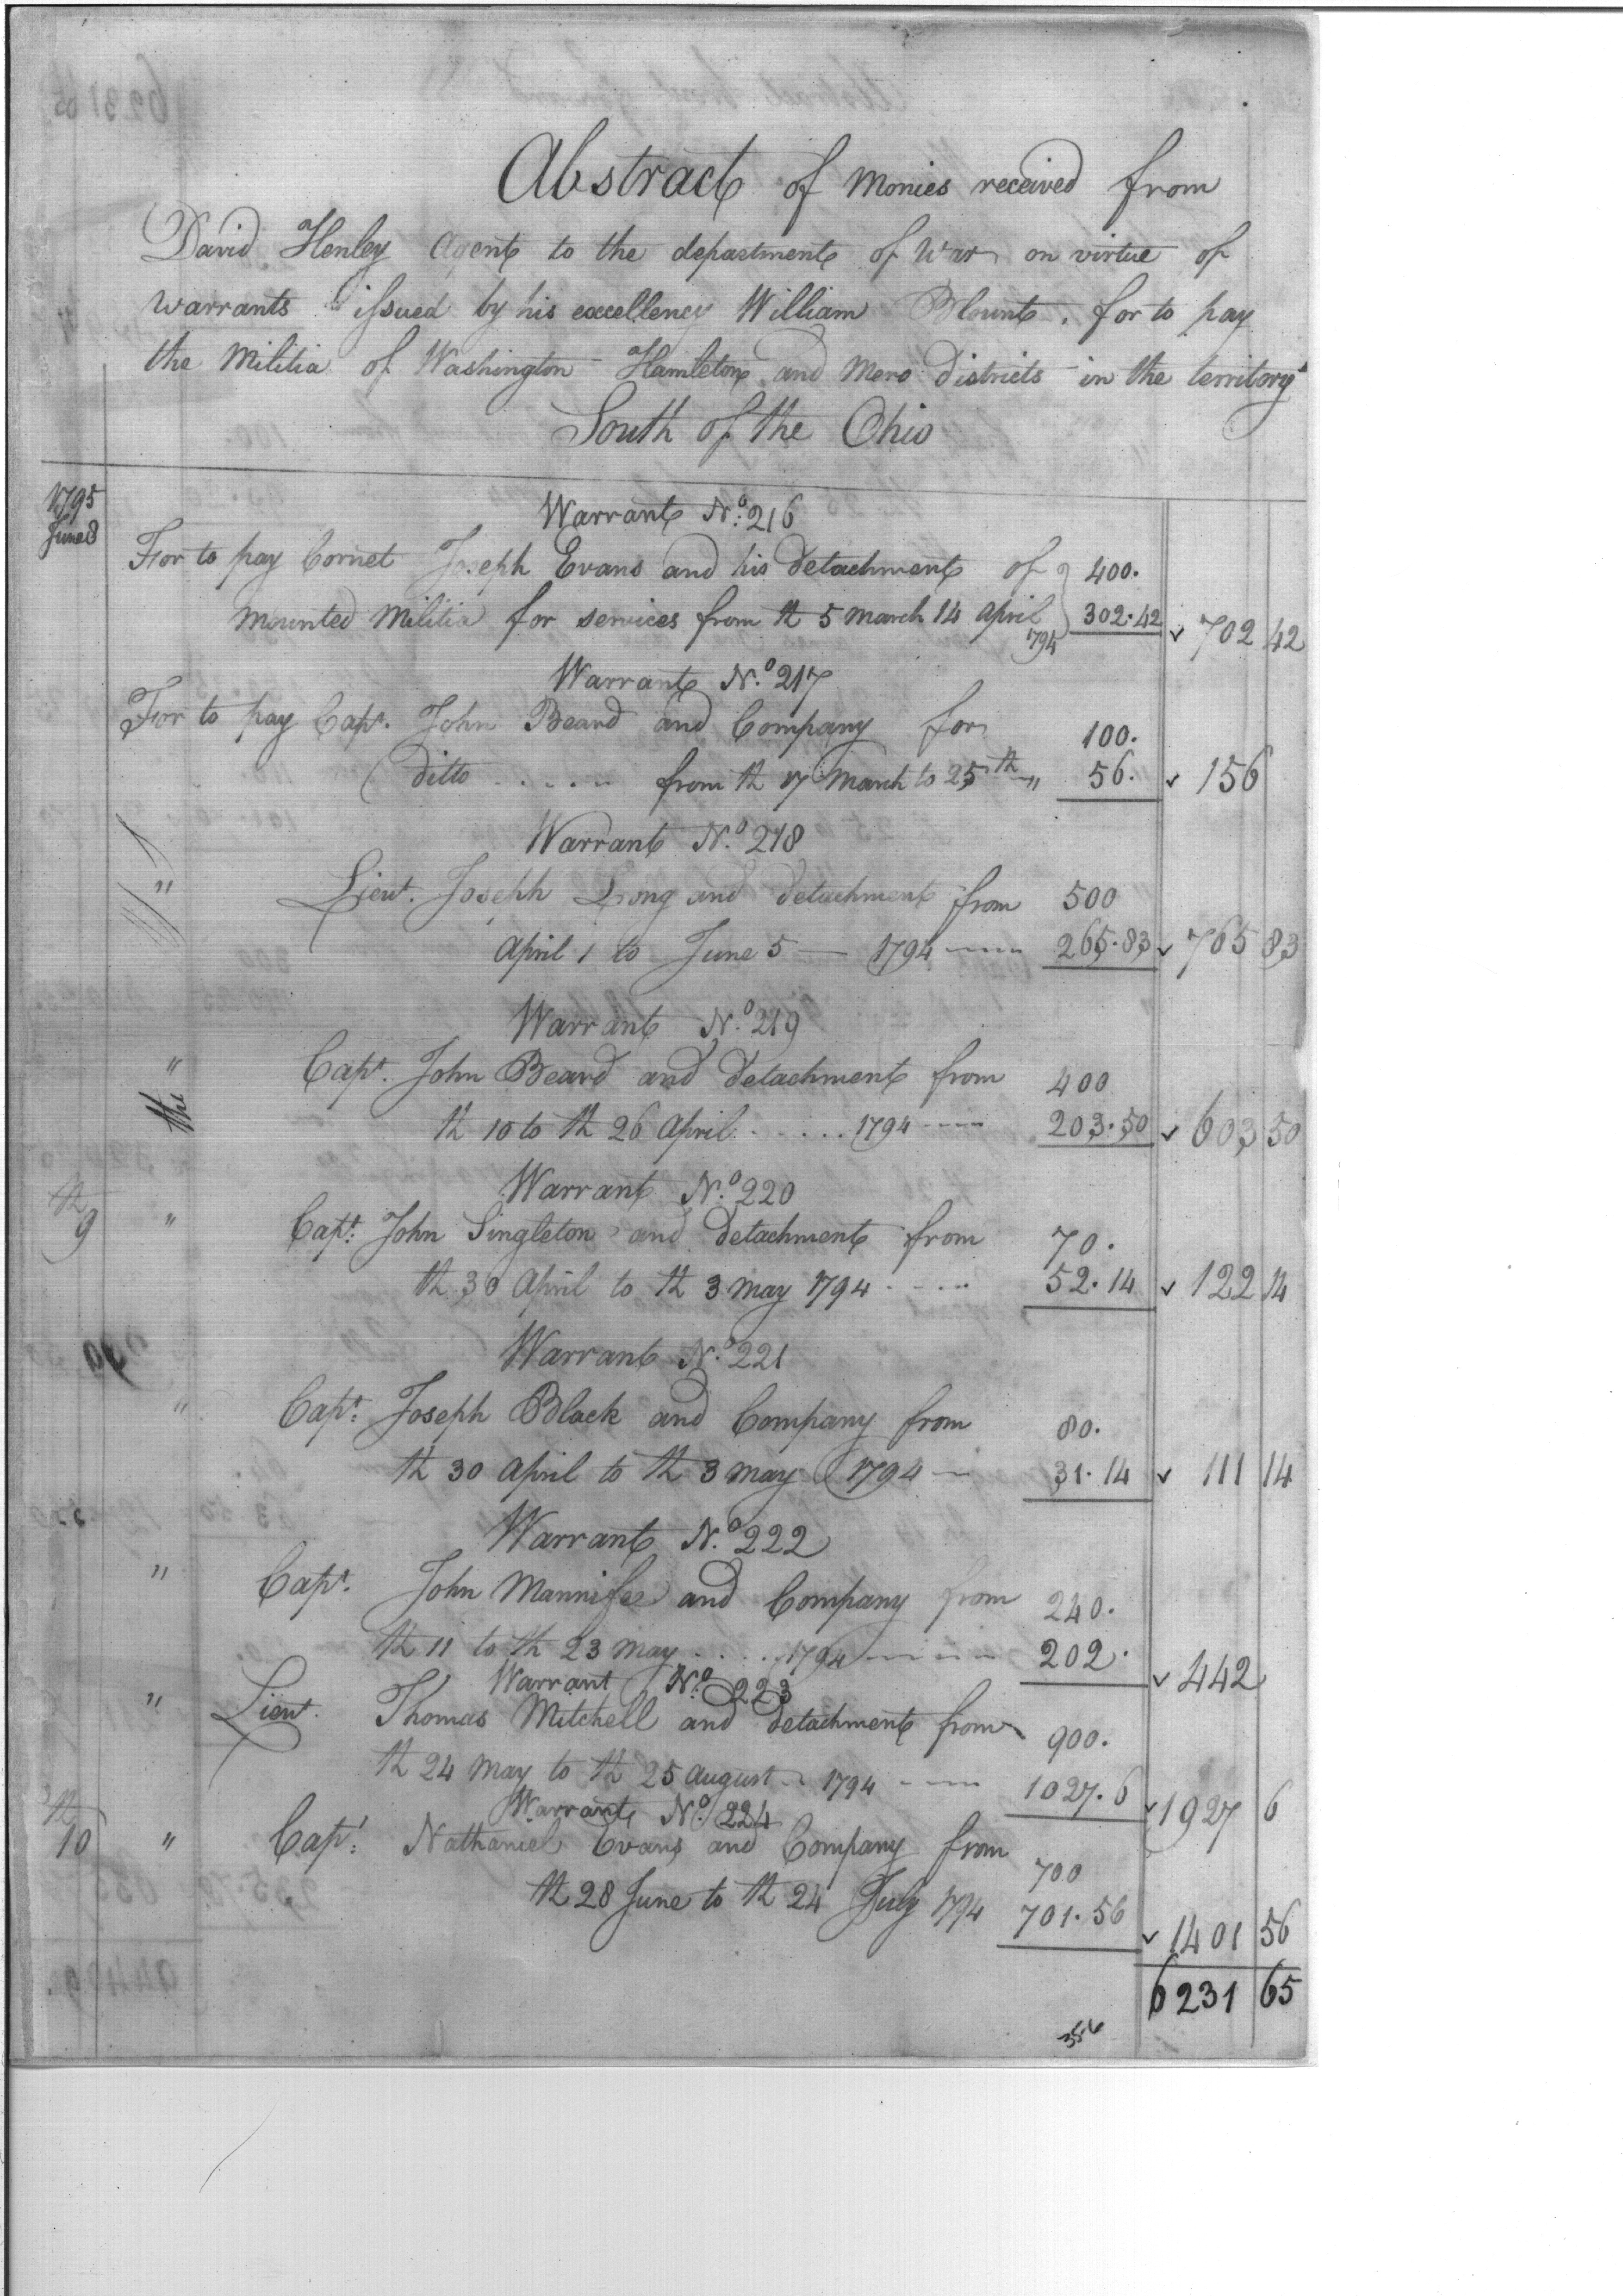 Abstract of monies received from
David Henley Agent to the department of War on virtue of
warrants issued by his excellency William Blount. for to pay
the Militia of Washington Hamleton and Mero districts in the territory
South of the Ohio
1795
June 8
Warrant No. 216
For to pay Cornet Joseph Evans and his detachment of 400.
mounted militia for services from th 5 March 14 April 1794 302.42 ✓ 702 42
Warrant No. 217
For to pay Capt. John Beard and Company for 100.
ditto ..... from th 17 March to 25th " 56. ✓ 156
Warrant No. 218
" Lieut. Joseph Long and detachment from 500
April 1 to June 5 — 1794 ---- 265.83 ✓ 765 83
Warrant No. 219
" Capt. John Beard and detachment from 400
th 10 to th 26 April ...... 1794 ---- 203.50 ✓ 603 50
Warrant No. 220
th 9 " Capt. John Singleton and detachment from 70.
th 30 April to th 3 may 1794 ---- 52.14 ✓ 122 14
Warrant No. 221
" Capt. Joseph Black and Company from 80.
th 30 April to th 3 may 1794 — 31.14 ✓ 111 14
Warrant No. 222
" Capt. John and Company from 240.
th 11 to th 23 may .... 1794 ---- 202. ✓ 442
Warrant No. 223
" Lieut. Thomas Mitchell and detachment from 900.
th 24 May to th 25 August - 1794 ---- 1027.6 ✓ 1927 6
Warrant No. 224
th 10 " Capt. Nathaniel Evans and Company from 700
th 28 June to th 24 July 1794 701.56 ✓ 1401 56
6231 65
356